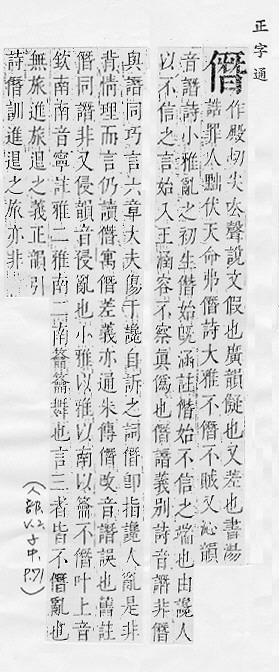 正字通
僭 作殿切尖去聲說文假也廣韻儗也又差也書湯
誥罪人黜伏天命弗僭詩大雅不僭不賊又沁韻
音譖詩小雅亂之初生僭始旣涵註僭始不信之端也由讒人
以不信之言始入王涵容不察眞僞也僭譖義别詩音譖非僭
與譖同巧言六章大夫傷于讒自訴之詞僭卽指讒人亂是非
背情理而言仍讀僭寓僭差義亦通朱傳僭改音譖誤也舊註
僭同譖非又侵韻音侵亂也小雅以雅以南以籥不僭叶上音
欽南南音寧註雅二雅南二南籥籥舞也言三者皆不僭亂也
無旅進旅退之義正韻引
詩僭訓進退之旅亦非
(人部 V.2, 子中, P.71)